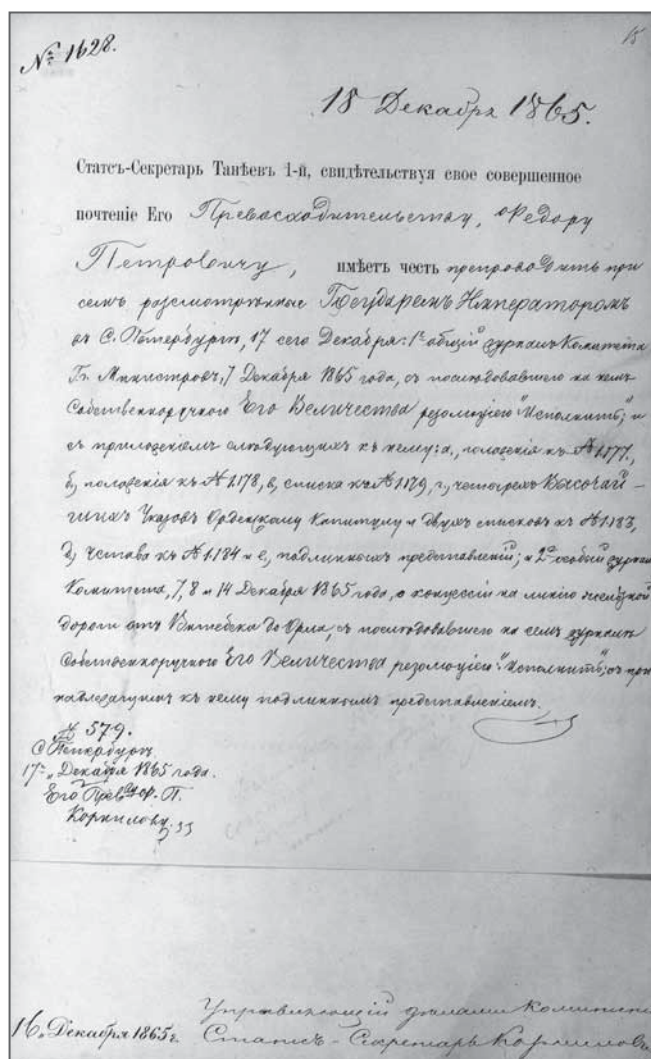 № 1628.
15
18 Декабря 1865.
Статсъ-Секретарь Танѣевъ 1-й, свидѣтельствуя свое совершенное
почтеніе Его Превосходительству, Ѳедору
Петровичу, имѣетъ честь препроводить при
семъ разсмотрѣнные Государемъ Императоромъ
въ С. Петербургѣ, 17 сего Декабря: 1е общій журналъ Комитета
Гг. Министровъ, 7 Декабря 1865 года, съ послѣдовавшею на немъ
Собственноручною Его Величества резолюціею "Исполнить"; и
съ приложеніемъ слѣдующихъ къ нему: а, положенія къ № 1177,
б, положенія къ № 1178, в, списка къ № 1179, г, четырехъ Высочай-
шихъ Указовъ Орденскому Капитулу и двухъ списковъ къ № 1183,
д, Устава къ № 1184 и е, подлинныхъ представленій; и 2е особый журналъ
Комитета, 7, 8 и 14 Декабря 1865 года, о концессіи на линію желѣзной
дороги отъ Витебска до Орла, съ послѣдовавшею на семъ журналѣ
Собственноручною Его Величества резолюціею: "Исполнить"; съ при-
надлежащимъ къ нему подлиннымъ представленіемъ.
№ 579.
С. Петербургъ
17го Декабря 1865 года.
Его Прев. Ѳ. П.
Корнилову.
16 Декабря 1865 г.
Управляющій дѣлами Комитета
Статсъ-Секретарь Корниловъ